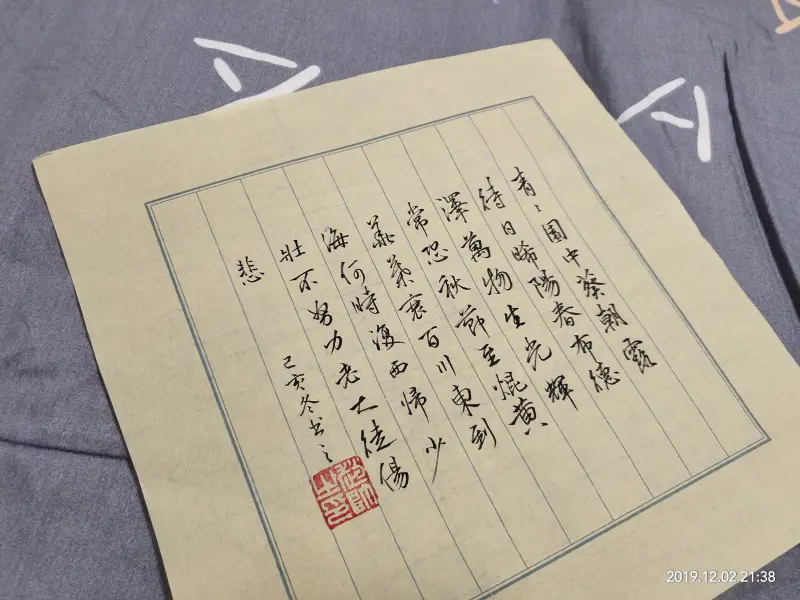 青々園中葵朝露
待日晞陽春布德
澤萬物生光輝
常恐秋節至焜黃
華葉衰百川東到
海何時復西歸少
壯不努力老大徒傷
悲
己亥冬书之
2019.12.02 21:38